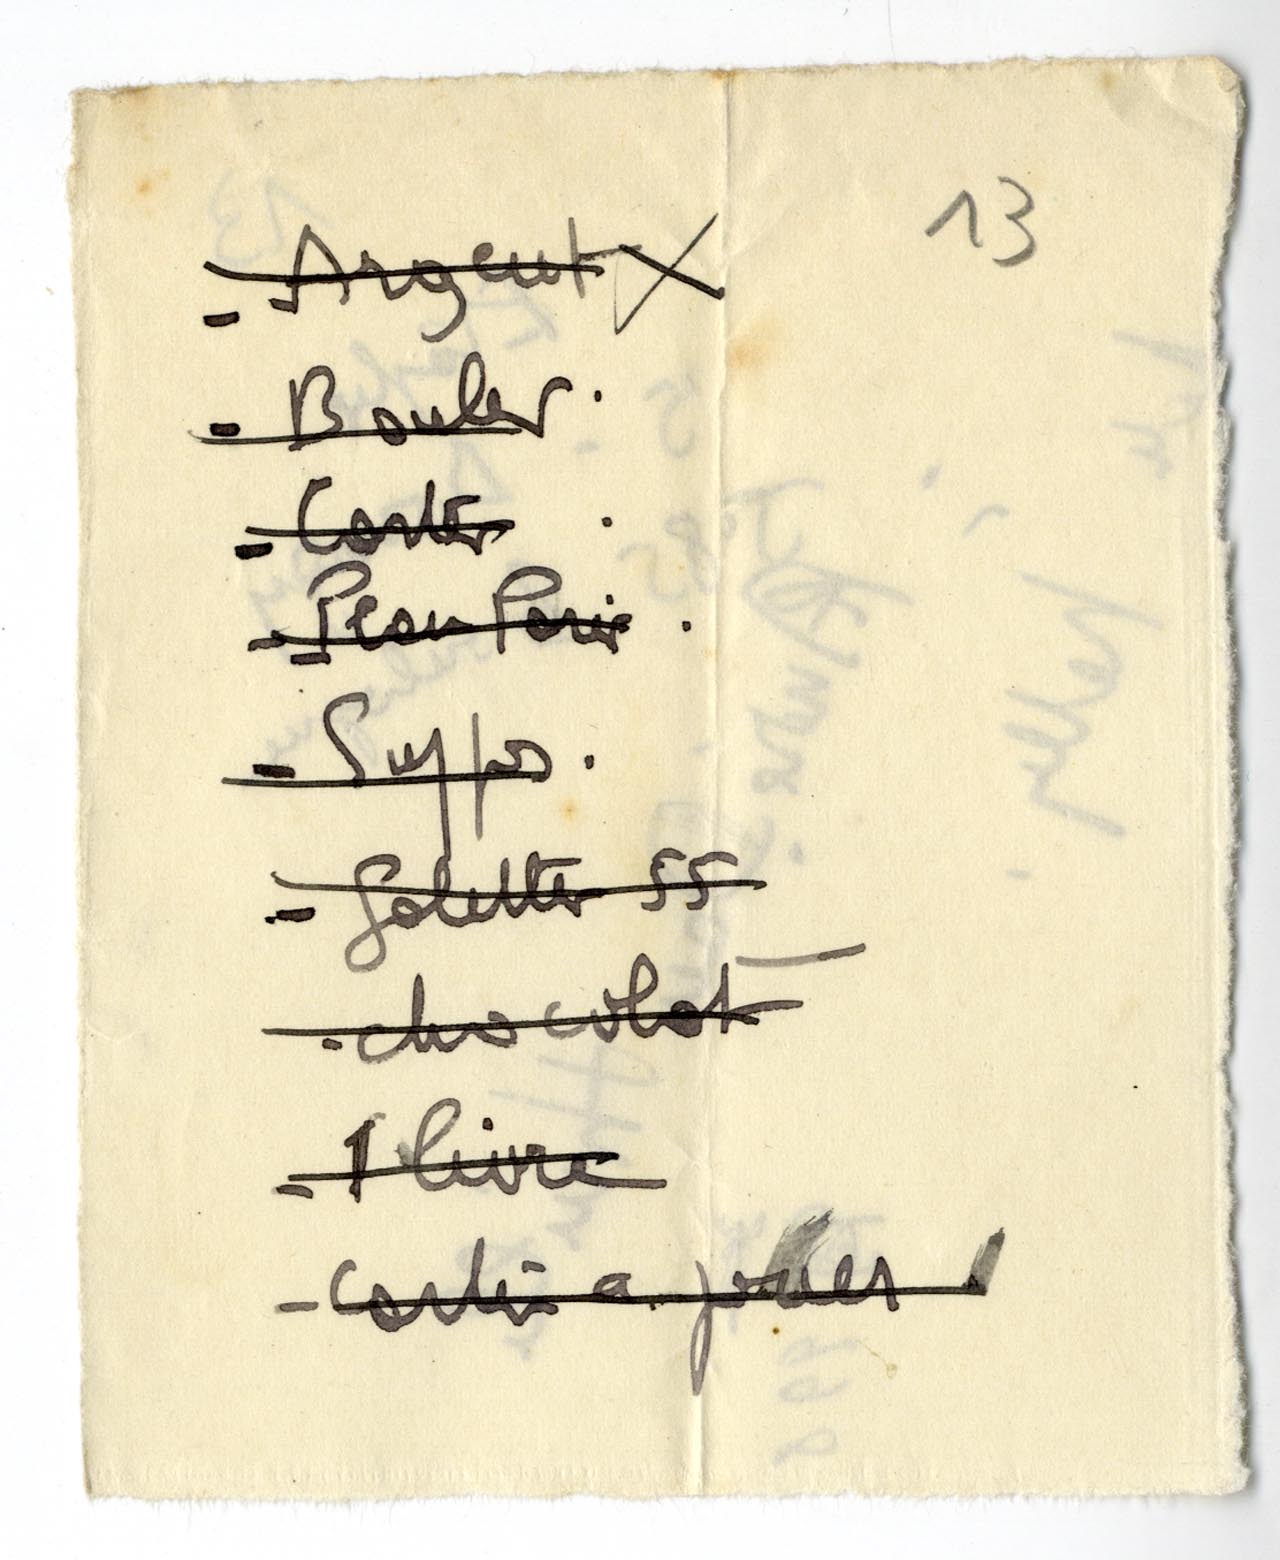 13
- Argent X
- Boules .
- Cartes .
- Plan Paris .
- Suppos .
- Galettes SS
- chocolat
- 1 livre
- Cartes a jouer